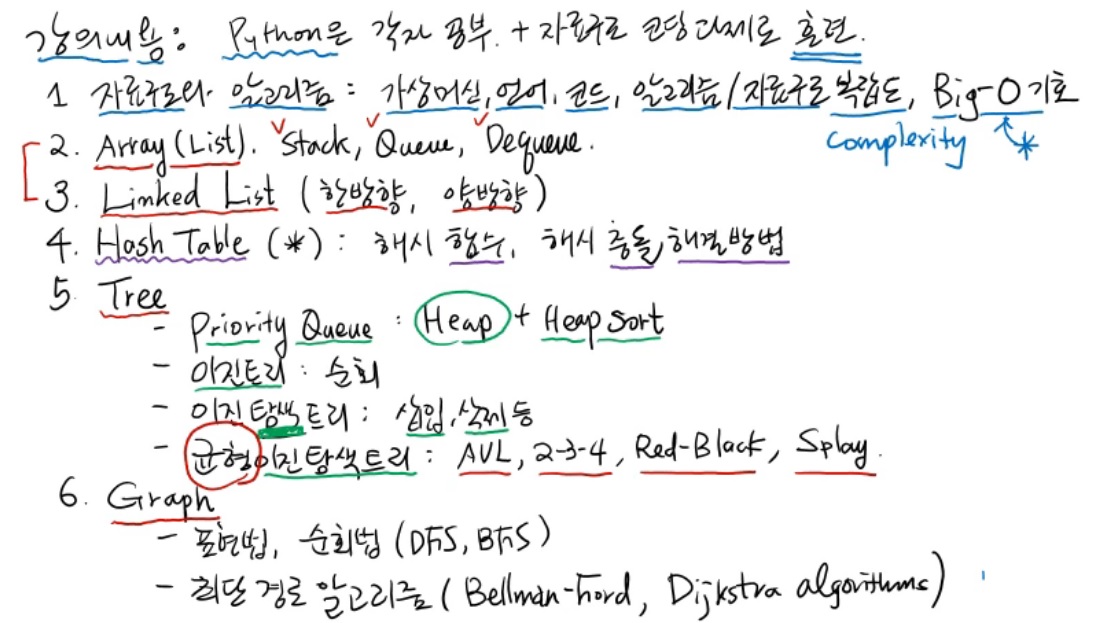 강의내용: Python은 각자 공부. + 자료구조 코딩과제로 훈련.
1 자료구조와 알고리즘: 가상머신, 언어, 코드, 알고리즘/자료구조 복잡도, Big-O 기호
complexity *
2. Array (List). Stack, Queue, Dequeue.
3. Linked List (한방향, 양방향)
4. Hash Table (*): 해시 함수, 해시 충돌, 해결방법
5. Tree
- Priority Queue: Heap + Heap sort
- 이진트리: 순회
- 이진탐색트리: 삽입, 삭제 등
- 균형이진탐색트리: AVL, 2-3-4, Red-Black, Splay.
6. Graph
- 표현법, 순회법 (DFS, BFS)
- 최단 경로 알고리즘 (Bellman-Ford, Dijkstra algorithms)